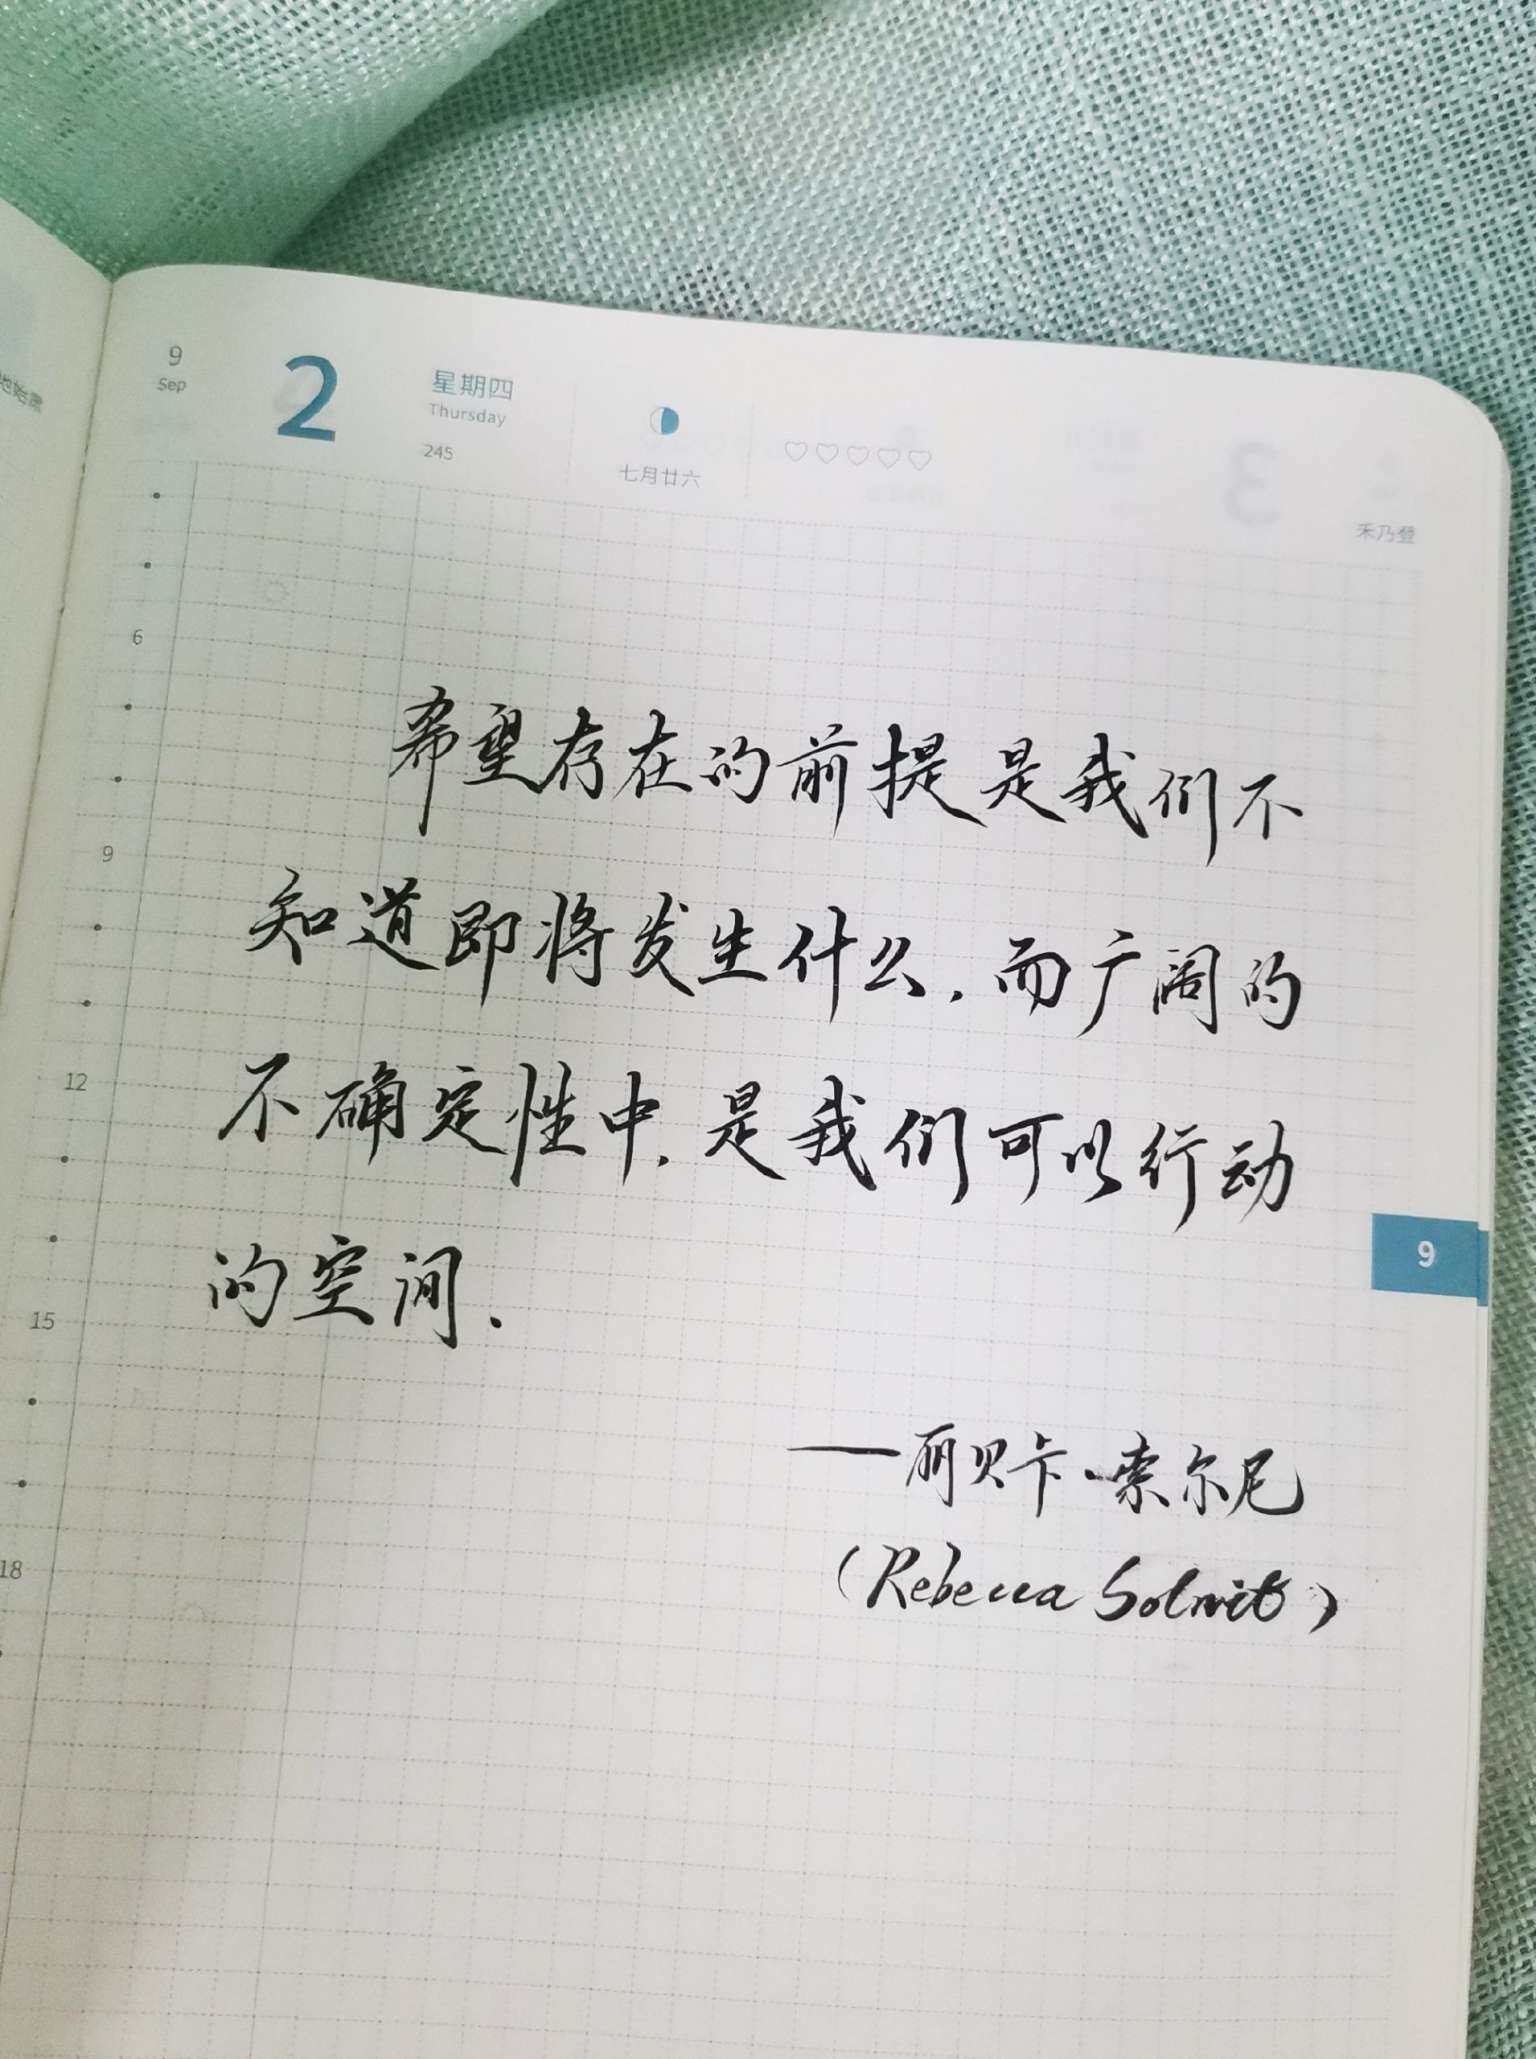 9
Sep
2
星期四
Thursday
245
七月廿六
禾乃登
6
9
12
15
18
希望存在的前提是我们不
知道即将发生什么.而广阔的
不确定性中.是我们可以行动
的空间.
9
——丽贝卡·索尔尼
(Rebecca Solnit)